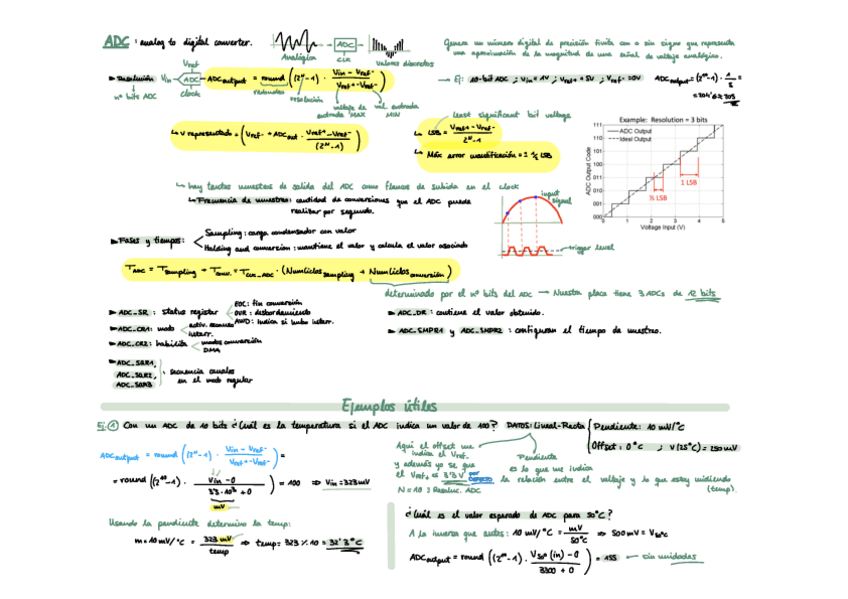 ADC : analog to digital converter.
Analógica
ADC
CLK
valores discretos
Genera un número digital de precisión finita con o sin signo que representa
una aproximación de la magnitud de una señal de voltaje analógico.
Resolución
nº bits ADC
Vref
Vin
ADC
clock
ADCoutput = round ((2ᴺ-1) · (Vin - Vref-)/(Vref+ - Vref-))
redondeo
resolución
voltaje de entrada MAX
val. entrada MIN
Ej: 10-bit ADC ; Vin = 1V ; Vref+ = 5V ; Vref- = 0V
ADCoutput = (2ᴺ-1) · 1/5 =
V representado = (Vref- + ADCout · (Vref+ - Vref-)/(2ᴺ-1))
Least significant bit voltage
LSB = (Vref+ - Vref-)/(2ᴺ-1)
Máx error cuantificación = ± ½ LSB
Example: Resolution = 3 bits
ADC Output
Ideal Output
ADC Output Code
111
110
101
100
011
010
001
000
1 LSB
½ LSB
0 1 2 3 4 5
Voltage Input (V)
hay tantas muestras de salida del ADC como flancos de subida en el clock
Frecuencia de muestreo: cantidad de conversiones que el ADC pueda
realizar por segundo.
input signal
trigger level
Fases y tiempos:
Sampling: carga condensador con valor
Holding and conversion: mantiene el valor y calcula el valor asociado
TADC = Tsampling + Tconv. = TCLK_ADC · (NumCiclos sampling + NumCiclos conversión)
determinado por el nº bits del ADC → Nuestra placa tiene 3 ADCs de 12 bits
ADC_SR : status register
EOC: fin conversión
OVR : desbordamiento
AWD: indica si hubo interr.
ADC_CR1: modo
interr.
ADC_CR2: habilita
modos conversión
DMA
ADC_SQR1,
ADC_SQR2,
ADC_SQR3
: secuencia canales
en el modo regular
ADC_DR : contiene el valor obtenido.
ADC_SMPR1 y ADC_SMPR2 : configuran el tiempo de muestreo.
Ejemplos útiles
Ej: ① Con un ADC de 10 bits ¿Cuál es la temperatura si el ADC indica un valor de 100? DATOS: Lineal-Recta
Pendiente: 10 mV/°C
Offset: 0°C ; V(25°C) = 250mV
ADCoutput = round ((2ᴺ-1) · (Vin - Vref-)/(Vref+ - Vref-)) =
= round ((2¹⁰-1) · (Vin - 0)/(3'3·10³ + 0)) = 100 ⇒ Vin = 323mV
mV
Aquí el offset me
indica el Vref-
y además ya se que
el Vref+ es 3'3V por defecto
N = 10 = Resoluc. ADC
Pendiente
es lo que me indica
la relación entre el voltaje y lo que estoy midiendo
(temp).
Usando la pendiente determino la temp:
m = 10 mV/°C = 323 mV/temp ⇒ temp = 323 / 10 = 32'3°C
¿Cuál es el valor esperado de ADC para 50°C?
A la inversa que antes: 10 mV/°C = mV/50°C ⇒ 500mV = V50°C
ADCoutput = round ((2¹⁰-1) · (V50°(in) - 0)/(3300 + 0)) = 155 ← sin unidades